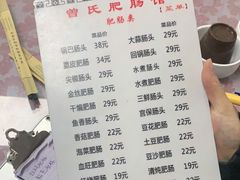 曾氏肥肠馆
【菜单】
肥肠类
菜品价 菜品价
锅巴肠头 38元 大蒜肠头 29元
蘸皮肥肠 34元 回锅肥肠 29元
尖椒肠头 29元 水煮肠头 29元
金丝肥肠 29元 水煮肥肠 29元
干煸肥肠 29元 三鲜肠头 29元
鱼香肠头 29元 宫保肠头 29元
香菇肥肠 22元 豆花肥肠 22元
泡菜肥肠 22元 土豆肥肠 22元
血旺肥肠 22元 豆沙肥肠 22元
清炖肥肠 19元